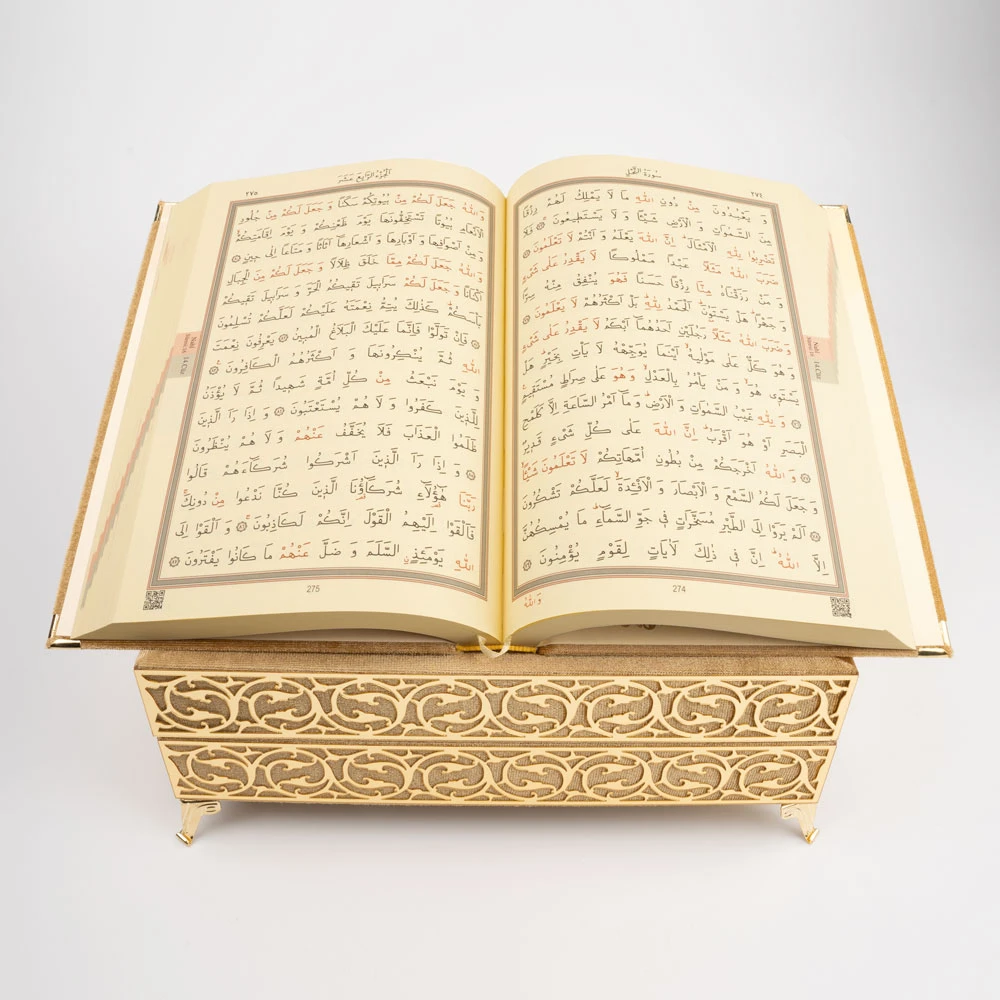 سُورَةُ النَّحْلِ ٢٧٤
وَ يَعْبُدُونَ مِنْ دُونِ اللّٰهِ مَا لَا يَمْلِكُ لَهُمْ رِزْقًا
مِنَ السَّمٰوَاتِ وَ الْاَرْضِ شَيْئًا وَ لَا يَسْتَطٖيعُونَ ۞ فَلَا
تَضْرِبُوا لِلّٰهِ الْاَمْثَالَ اِنَّ اللّٰهَ يَعْلَمُ وَ اَنْتُمْ لَا تَعْلَمُونَ ۞
ضَرَبَ اللّٰهُ مَثَلًا عَبْدًا مَمْلُوكًا لَا يَقْدِرُ عَلٰى شَيْءٍ
وَ مَنْ رَزَقْنَاهُ مِنَّا رِزْقًا حَسَنًا فَهُوَ يُنْفِقُ مِنْهُ سِرًّا
وَ جَهْرًا هَلْ يَسْتَوُنَ اَلْحَمْدُ لِلّٰهِ بَلْ اَكْثَرُهُمْ لَا يَعْلَمُونَ ۞
وَ ضَرَبَ اللّٰهُ مَثَلًا رَجُلَيْنِ اَحَدُهُمَا اَبْكَمُ لَا يَقْدِرُ عَلٰى شَيْءٍ
وَ هُوَ كَلٌّ عَلٰى مَوْلٰيهُ اَيْنَمَا يُوَجِّهْهُ لَا يَاْتِ بِخَيْرٍ هَلْ
يَسْتَوٖى هُوَ وَ مَنْ يَاْمُرُ بِالْعَدْلِ وَ هُوَ عَلٰى صِرَاطٍ مُسْتَقٖيمٍ
۞ وَ لِلّٰهِ غَيْبُ السَّمٰوَاتِ وَ الْاَرْضِ وَ مَا اَمْرُ السَّاعَةِ اِلَّا كَلَمْحِ
الْبَصَرِ اَوْ هُوَ اَقْرَبُ اِنَّ اللّٰهَ عَلٰى كُلِّ شَيْءٍ قَدٖيرٌ
۞ وَ اللّٰهُ اَخْرَجَكُمْ مِنْ بُطُونِ اُمَّهَاتِكُمْ لَا تَعْلَمُونَ شَيْئًا
وَ جَعَلَ لَكُمُ السَّمْعَ وَ الْاَبْصَارَ وَ الْاَفْئِدَةَ لَعَلَّكُمْ تَشْكُرُونَ
۞ اَلَمْ يَرَوْا اِلَى الطَّيْرِ مُسَخَّرَاتٍ فٖى جَوِّ السَّمَاءِ مَا يُمْسِكُهُنَّ
اِلَّا اللّٰهُ اِنَّ فٖى ذٰلِكَ لَاٰيَاتٍ لِقَوْمٍ يُؤْمِنُونَ ۞
274
وَ اللّٰهُ
Nahl
٢٧٥ اَلْجُزْءُ الرَّابِعَ عَشَرَ
وَ اللّٰهُ جَعَلَ لَكُمْ مِنْ بُيُوتِكُمْ سَكَنًا وَ جَعَلَ لَكُمْ مِنْ جُلُودِ
الْاَنْعَامِ بُيُوتًا تَسْتَخِفُّونَهَا يَوْمَ ظَعْنِكُمْ وَ يَوْمَ اِقَامَتِكُمْ
وَ مِنْ اَصْوَافِهَا وَ اَوْبَارِهَا وَ اَشْعَارِهَا اَثَاثًا وَ مَتَاعًا اِلٰى حٖينٍ ۞
وَ اللّٰهُ جَعَلَ لَكُمْ مِمَّا خَلَقَ ظِلَالًا وَ جَعَلَ لَكُمْ مِنَ الْجِبَالِ
اَكْنَانًا وَ جَعَلَ لَكُمْ سَرَابٖيلَ تَقٖيكُمُ الْحَرَّ وَ سَرَابٖيلَ تَقٖيكُمْ
بَاْسَكُمْ كَذٰلِكَ يُتِمُّ نِعْمَتَهُ عَلَيْكُمْ لَعَلَّكُمْ تُسْلِمُونَ
۞ فَاِنْ تَوَلَّوْا فَاِنَّمَا عَلَيْكَ الْبَلَاغُ الْمُبٖينُ ۞ يَعْرِفُونَ نِعْمَتَ
اللّٰهِ ثُمَّ يُنْكِرُونَهَا وَ اَكْثَرُهُمُ الْكَافِرُونَ ۞
وَ يَوْمَ نَبْعَثُ مِنْ كُلِّ اُمَّةٍ شَهٖيدًا ثُمَّ لَا يُؤْذَنُ
لِلَّذٖينَ كَفَرُوا وَ لَا هُمْ يُسْتَعْتَبُونَ ۞ وَ اِذَا رَاَ الَّذٖينَ
ظَلَمُوا الْعَذَابَ فَلَا يُخَفَّفُ عَنْهُمْ وَ لَا هُمْ يُنْظَرُونَ
۞ وَ اِذَا رَاَ الَّذٖينَ اَشْرَكُوا شُرَكَاءَهُمْ قَالُوا
رَبَّنَا هٰؤُلَاءِ شُرَكَاؤُنَا الَّذٖينَ كُنَّا نَدْعُوا مِنْ دُونِكَ
فَاَلْقَوْا اِلَيْهِمُ الْقَوْلَ اِنَّكُمْ لَكَاذِبُونَ ۞ وَ اَلْقَوْا اِلَى
اللّٰهِ يَوْمَئِذٍ السَّلَمَ وَ ضَلَّ عَنْهُمْ مَا كَانُوا يَفْتَرُونَ ۞
275
Nahl